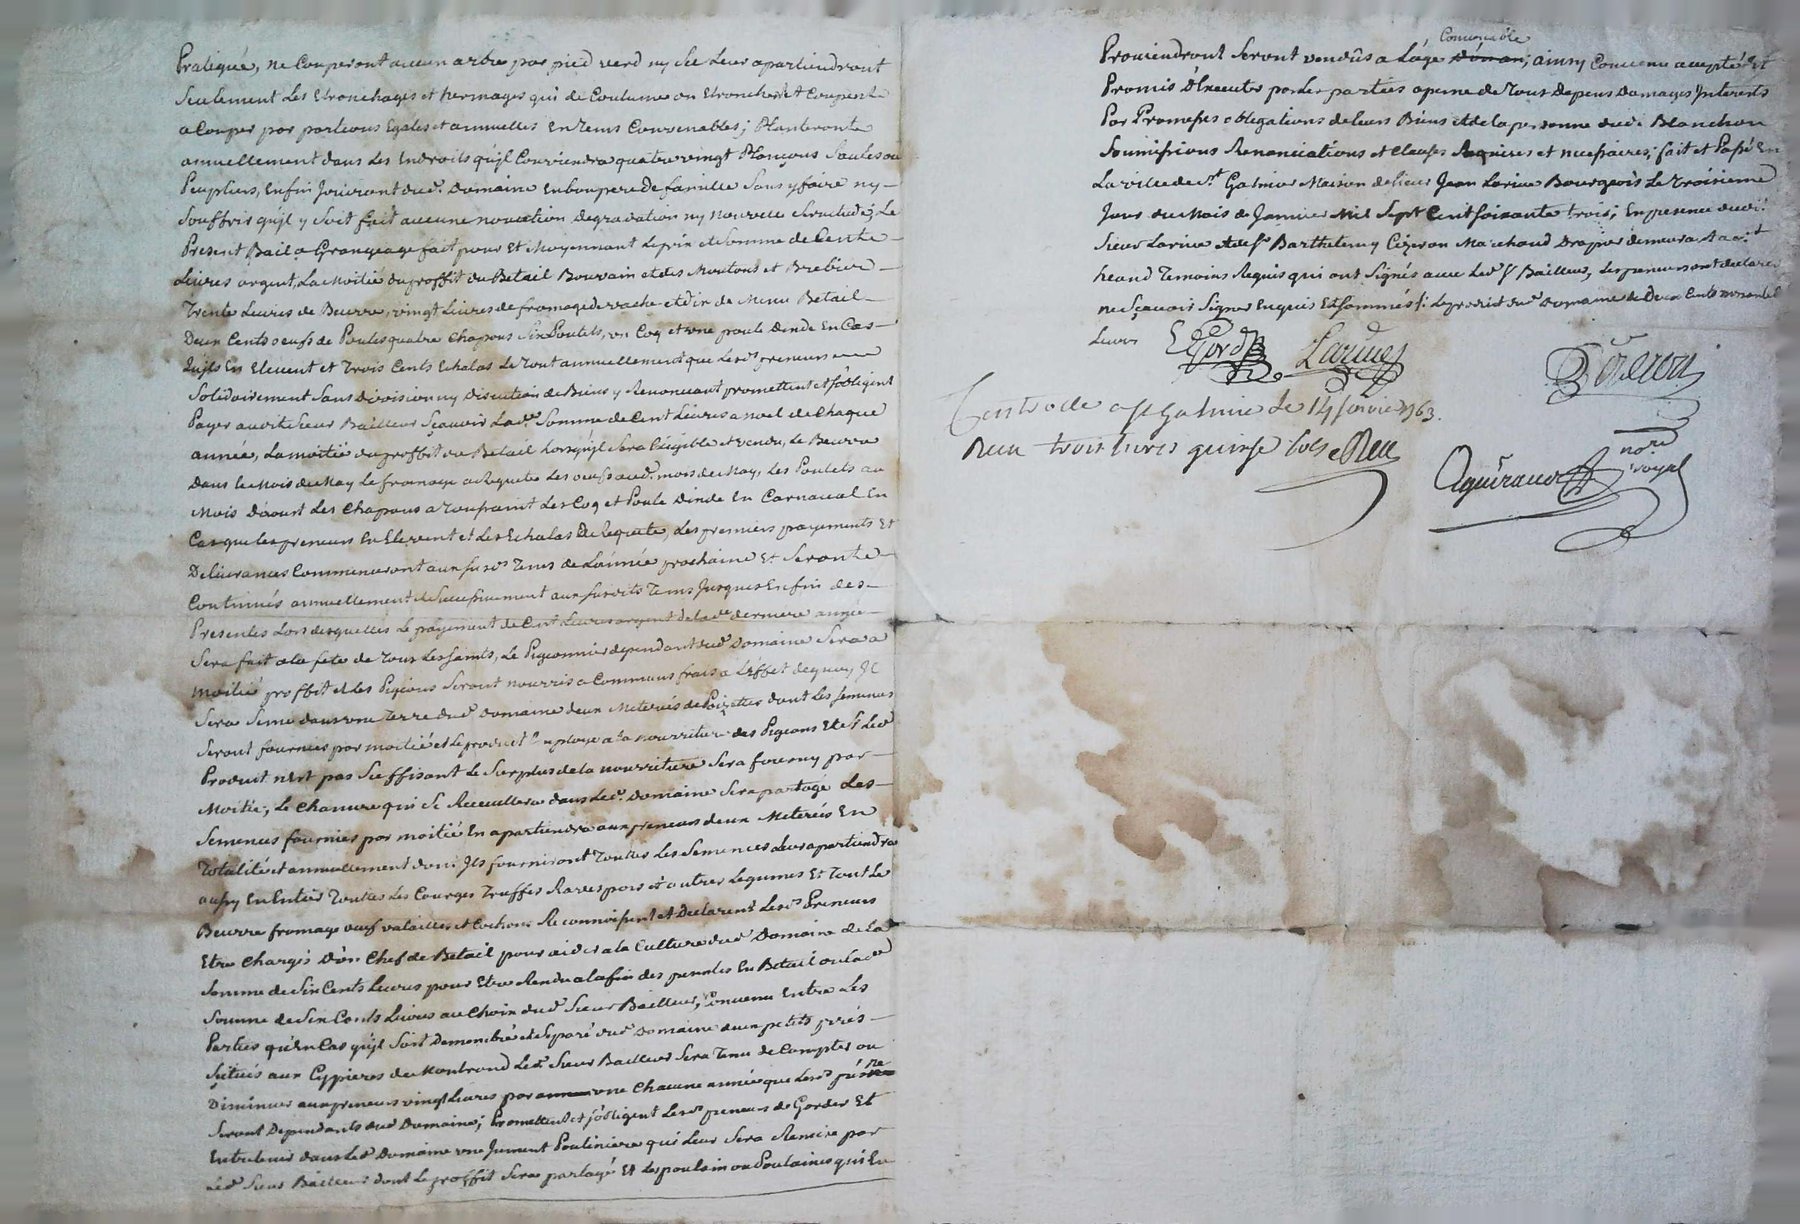 Pratiquée, ne Couperont aucun arbre par pied verd ny sec Leur apartiendront
Seulement Les Etronchages et hermages qui de Coutume on Etronche et Coupent
a Couper par portions Egales et annuelles En tems Convenables; Planteronte
annuellement dans Les Endroits qu'jl Conviendra quatre vingt Plançons Saules ou
Peupliers, Enfin Jouiront dud. Domaine En bon pere de famille Sans y faire ny
Souffrir qu'jl y Soit fait aucune novation Degradation ny nouvelle Servitude, Le
Present Bail a Grangeage fait pour Et Moyennant Le prix et Somme de Cente
Livres argent, La Moitié du proffit du Betail Bouvain et des Moutons et Brebiere
Trente Livres de Beurre, vingt Livres de fromage de vache et dix de Menu Betail
Deux Cents oeufs de Poules quatre Chapons Six Poulets, un Coq et une poule dinde En Cas
qu'jls En Elevent et Trois Cents Echalas Le Tout annuellement que Lesd. preneurs
Solidairement Sans division ny Discution de Biens y Renonceant promettent et s'obligent
Payer audit Sieur Bailleur Sçavoir Lad. Somme de Cent Livres a noel de Chaque
année, La moitié du proffit du Betail Lorsqu'jl Sera Exigible et vendu, Le Beurre
dans le Mois de May Le fromage a Les oeufs aud. mois de May, Les Poulets au
Mois d'aoust Les Chapons a Toussaint Les Coq et Poule Dinde En Carnaval En
Cas que Les preneurs En Elevent et Les Echalas De Requete, Les premiers payements Et
Delivrances Commenceront aux susd. Tems de L'année prochaine Et Seronte
Continués annuellement et Successivement aux susdits Tems Jusques En fin des
Presentes Lors desquelles Le payement de Cent Livres argent de Lad. derniere année
Sera fait a la fete de Tous Les saints, Le Pigeonnier dependant dud. Domaine Sera a
moitié proffit et Les Pigeons Seront nourris a Communs frais a L'effet de quoy Jl
Sera Semé dans une Terre dud. Domaine deux Meterées de Poizettes dont Les semences
Seront fournies par moitié et Le produit employé a la nourriture des Pigeons Et Si Led.
Produit n'Est pas Suffisant Le Surplus de la nourriture Sera fourny par
Moitié; Le Chanvre qui Se Recueillera dans Led. Domaine Sera partagé Les
Semences fournies par moitié En apartiendra aux preneurs deux Meterées En
Totalité et annuellement dont Jls fourniront Toutes Les Semences Leur apartiendra
aussy En Entier Toutes Les Courges Truffes Raves pois et autres Legumes Et Tout Le
Beurre fromage oeufs volailles et Cochons Reconnoissent et Declarent Lesd. Preneurs
Etre Chargés d'un Chef de Betail pour aider a la Culture dud. Domaine de La
Somme de Six Cents Livres pour Etre Rendu a la fin des presentes En Betail ou Lad.
Somme de Six Cents Livres au Choix dud. Sieur Bailleur, Convenu Entre Les
Parties qu'En Cas qu'jl Soit Demembré et Separé dud. Domaine deux petits prés
Scitués aux Cypieres de Montrond Led. Sieur Bailleur Sera Tenu de Compter ou
Diminuer aux preneurs vingt Livres par une Chacune année que Lesd. prés ne
Seront Dependants dud. Domaine; Promettent et s'obligent Lesd. preneurs de Garder Et
Entretenir dans Led. Domaine une Jument Pouliniere qui Leur Sera Remise par
Led. Sieur Bailleur dont Le proffit Sera partagé Et Les poulain ou Poulaines qui En
Convenable
Proviendront Seront vendûs a L'age; ainsy Convenu accepté Et
Promis d'Executer par Les parties a peine de Tous Depens Domages Interets
Par Promesses obligations de leurs Biens et de la personne dud. Blanchon
Soumissions Renonciations et Clauses Requises et necessaires; fait et Passé En
La ville de St. Galmier Maison de Sieur Jean Larive Bourgeois Le Troisieme
Jour du Mois de Janvier Mil Sept Cent Soixante trois; En presence dudit
Sieur Larive et de Sr. Barthelemy Cizeron Marchand Drapier demeurant
heand Temoins Requis qui ont Signés avec Led. Sr. Bailleur, Les preneurs ont declaré
ne Sçavoir Signer Enquis Et Sommés; Le produit dud. Domaine de Deux Cents nonante
Livres
Larive
Cizeron
Controllé a St Galmier Le 14 janvier 1763.
Reçu trois livres quinze sols
Aguiraud no.re royal